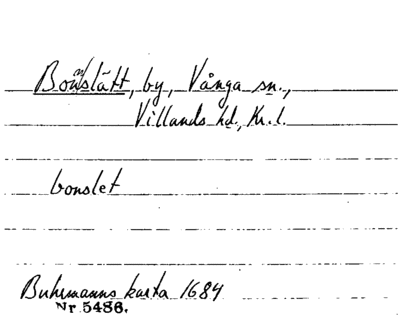 Bonslätt, by, Vånga sn.,
Villands hd., Kr.l.
bonslet
Buhrmanns karta 1684
Nr 5486.